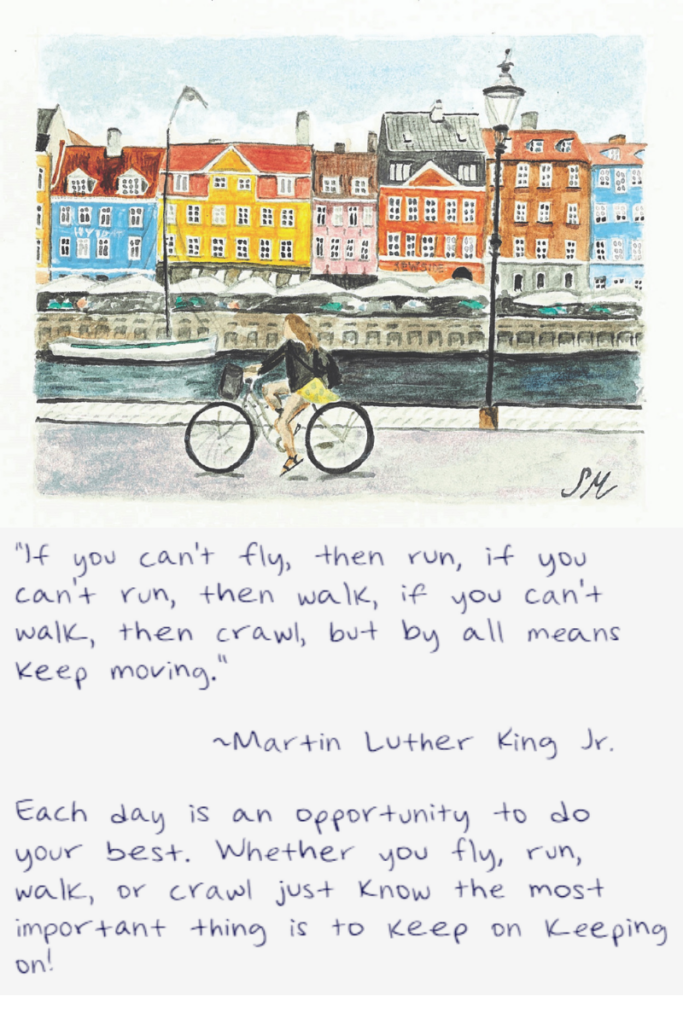 SM
"If you can't fly, then run, if you
can't run, then walk, if you can't
walk, then crawl, but by all means
keep moving."
~Martin Luther King Jr.
Each day is an opportunity to do
your best. Whether you fly, run,
walk, or crawl just know the most
important thing is to keep on keeping
on!